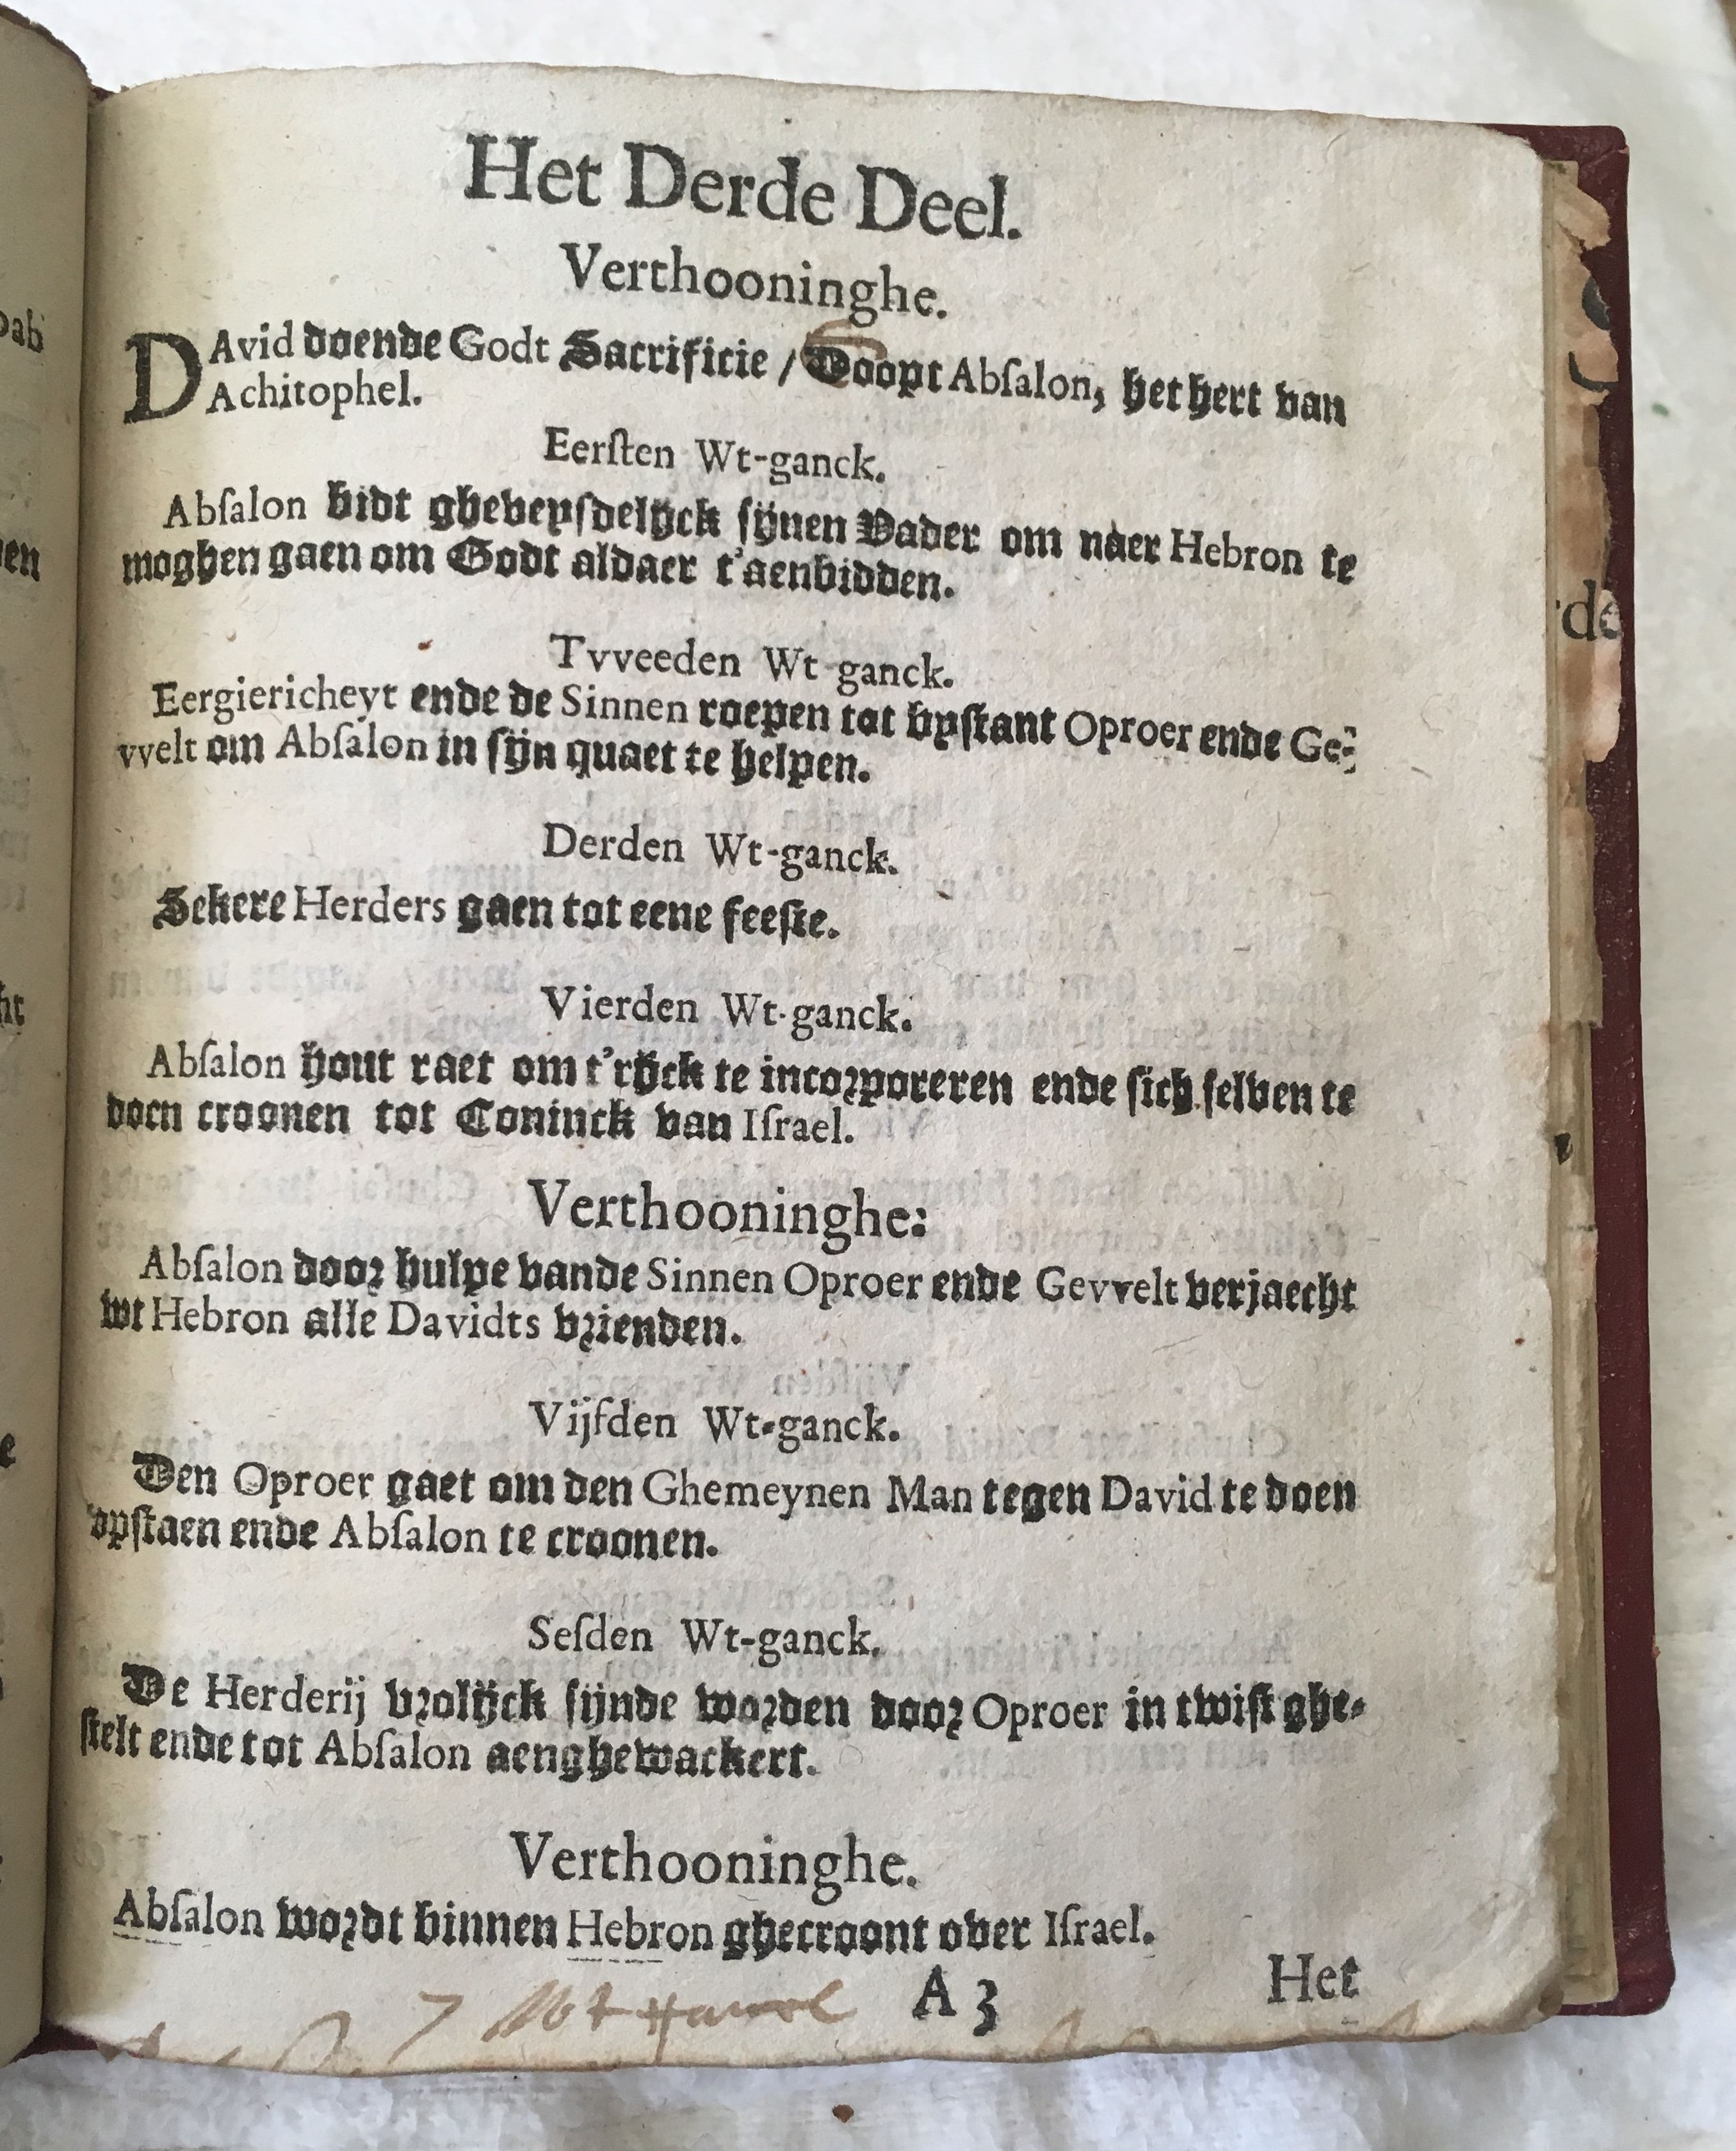 Het Derde Deel.
Verthooninghe.
DAvid doende Godt Sacrificie / Doopt Abſalon, het hert van
Achitophel.
Eerſten Wt-ganck.
Abſalon bidt gheveynſdelijck ſijnen Vader om naer Hebron te
moghen gaen om Godt aldaer t'aenbidden.
Tvveeden Wt ganck.
Eergiericheyt ende de Sinnen roepen tot byſtant Oproer ende Ge-
vvelt om Abſalon in ſijn quaet te helpen.
Derden Wt-ganck.
Sekere Herders gaen tot eene feeſte.
Vierden Wt-ganck.
Abſalon hout raet om t'rijck te incorporeren ende ſich ſelven te
doen croonen tot Coninck van Iſrael.
Verthooninghe:
Abſalon door hulpe vande Sinnen Oproer ende Gevvelt verjaecht
wt Hebron alle Davidts vrienden.
Vijfden Wt-ganck.
Den Oproer gaet om den Ghemeynen Man tegen David te doen
opſtaen ende Abſalon te croonen.
Seſden Wt-ganck.
De Herderij vrolijck ſijnde worden door Oproer in twiſt ghe-
ſtelt ende tot Abſalon aenghewackert.
Verthooninghe.
Abſalon wordt binnen Hebron ghecroont over Iſrael.
A 3 Het